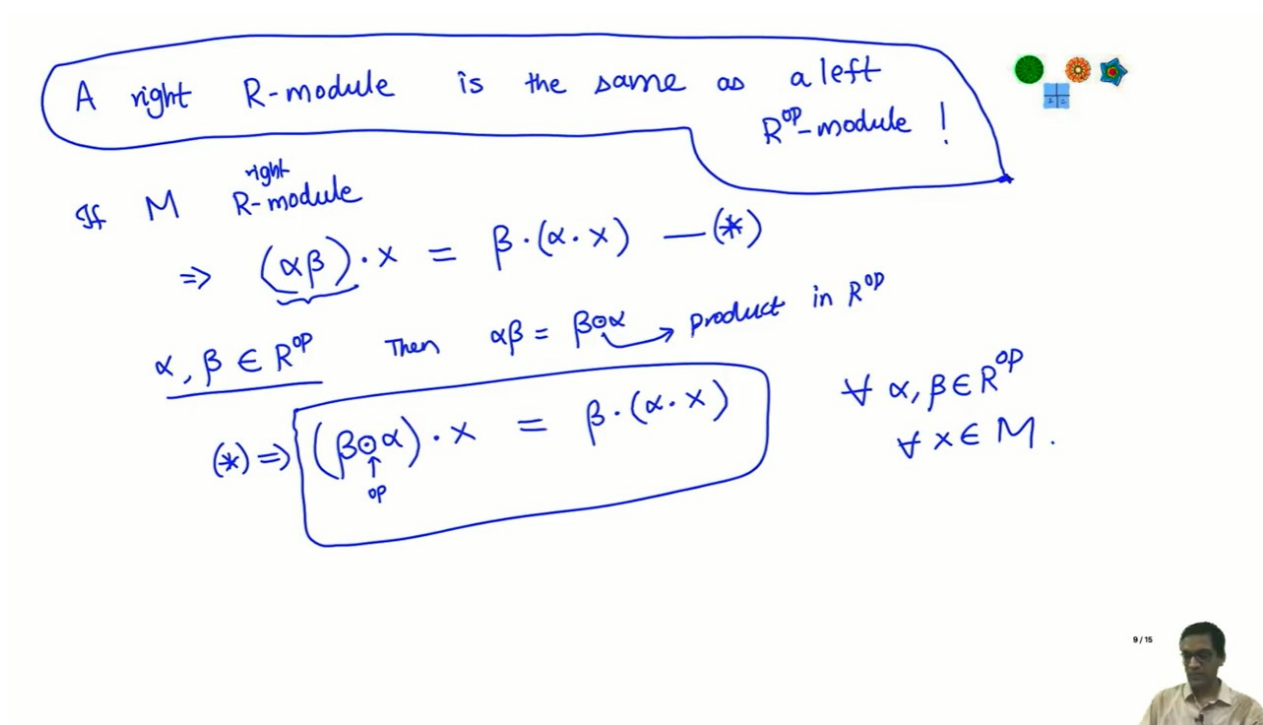 A right R-module is the same as a left
R^op-module !
If M right R-module
⇒ (αβ)·x = β·(α·x) —(*)
α, β ∈ R^op Then αβ = β⊙α → product in R^op
(*) ⇒ (β⊙α)·x = β·(α·x) ∀ α, β ∈ R^op
↑
op
∀ x ∈ M.
9 / 15